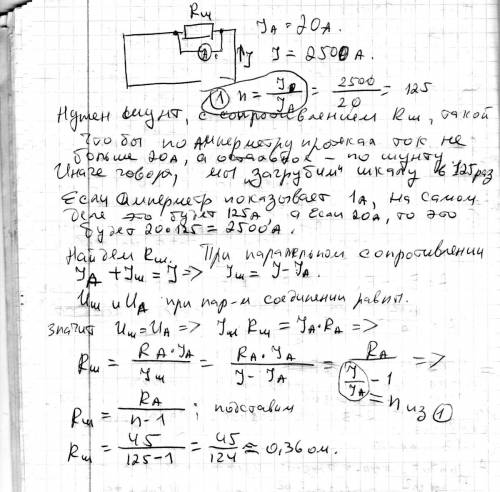 Rш
A
J
J_A = 20А.
J = 2500 А.
① n = J_0/J_A = 2500/20 = 125
Нужен шунт, с сопротивлением Rш, такой
чтобы по Амперметру прожал ток не
больше 20А, а остаток – по шунту
Иначе говоря, мы „загрубим" шкалу в 125 раз
Если Амперметр показывает 1А, на самом
деле это будет 125А, а если 20А, то это
будет 20·125 = 2500А.
Найдем Rш. При паралельном сопротивлении
J_A + Jш = J => Jш = J - J_A.
Uш и U_A при пар-м соединении равны.
значит Uш = U_A => Jш Rш = J_A · R_A =>
Rш = R_A · J_A / Jш = R_A · J_A / J - J_A = R_A / J/J_A - 1 =>
= n из ①
Rш = R_A / n-1 ; подставим
Rш = 45/125-1 = 45/124 ≈ 0,36 ом.